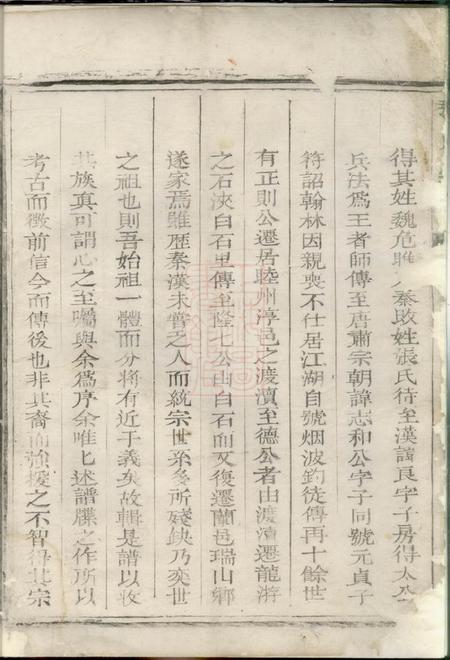 得其姓魏危睢入秦改姓張氏待至漢諱良字子房得太公
兵法為王者師傳至唐肅宗朝諱志和公字子同號元貞子
符詔翰林因親喪不仕居江湖自號烟波釣徒傳再十餘世
有正則公遷居睦州淳邑之渡瀆至德公者由渡瀆遷龍游
之石泱白石里傳至隆七公山白石而又復遷蘭邑瑞山鄉
遂家焉雖歷秦漢未嘗之人而統宗世系多所殘缺乃奕世
之祖也則吾始祖一體而分將有近于義矣故輯是譜以收
其族真可謂心之至囑與余為序余唯七述譜牒之作所以
考古而徵前信今而傳後也非其裔而強援之不智得其宗